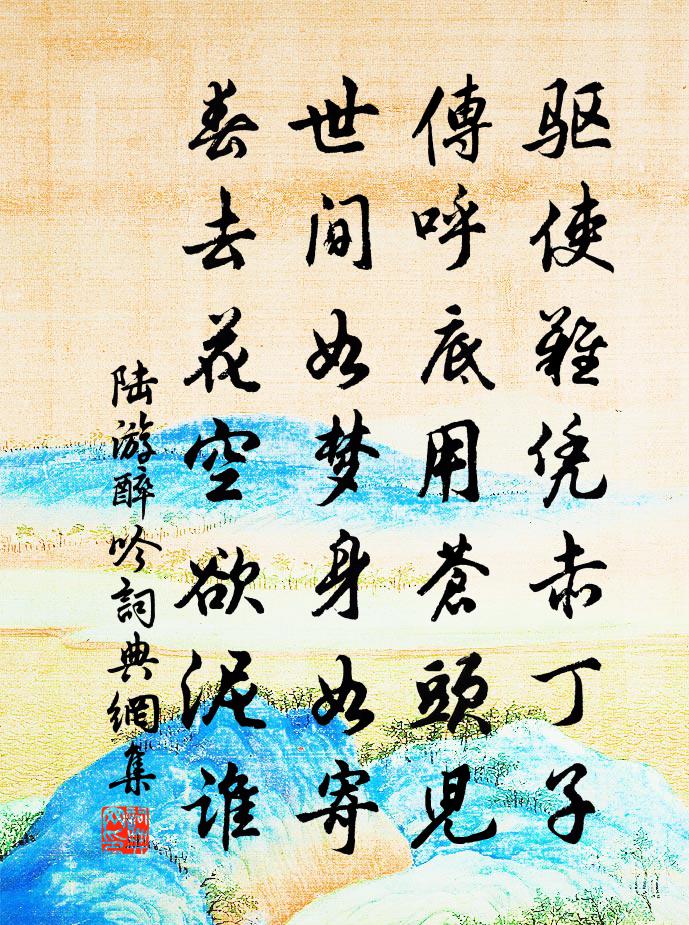 驱使難凭赤丁子
傳呼底用蒼頭兒
世间如梦身如寄
春去花空欲泥谁
陆游醉吟詞典網集